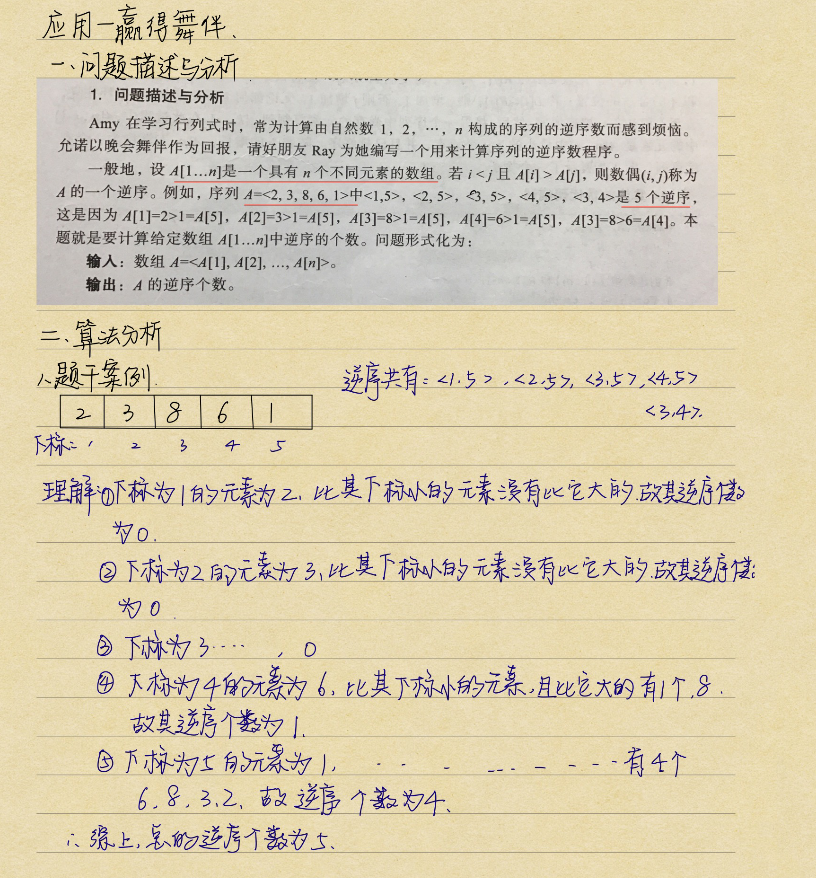 应用一赢得舞伴.
一、问题描述与分析
1. 问题描述与分析
Amy 在学习行列式时,常为计算由自然数 1,2,…,n 构成的序列的逆序数而感到烦恼。
允诺以晚会舞伴作为回报,请好朋友 Ray 为她编写一个用来计算序列的逆序数程序。
一般地,设 A[1…n]是一个具有 n 个不同元素的数组。若 i < j 且 A[i] > A[j],则数偶(i, j)称为
A 的一个逆序。例如,序列 A=<2, 3, 8, 6, 1>中<1,5>,<2, 5>,<3, 5>,<4, 5>,<3, 4>是 5 个逆序,
这是因为 A[1]=2>1=A[5],A[2]=3>1=A[5],A[3]=8>1=A[5],A[4]=6>1=A[5],A[3]=8>6=A[4]。本
题就是要计算给定数组 A[1…n]中逆序的个数。问题形式化为:
输入:数组 A=<A[1], A[2], …, A[n]>。
输出:A 的逆序个数。
二、算法分析
1、题干案例.
逆序共有:<1.5>,<2.5>,<3.5>,<4.5>
<3.4>.
2 3 8 6 1
下标: 1 2 3 4 5
理解:①下标为1的元素为2,比其下标小的元素没有比它大的.故其逆序个数
为0.
②下标为2的元素为3,比其下标小的元素没有比它大的.故其逆序个数
为0
③下标为3····,0
④下标为4的元素为6,比其下标小的元素,且比它大的有1个,8.
故其逆序个数为1.
⑤下标为5的元素为1, - - - --- - - ---有4个
6.8.3.2、故逆序个数为4、
∴综上,总的逆序个数为5.